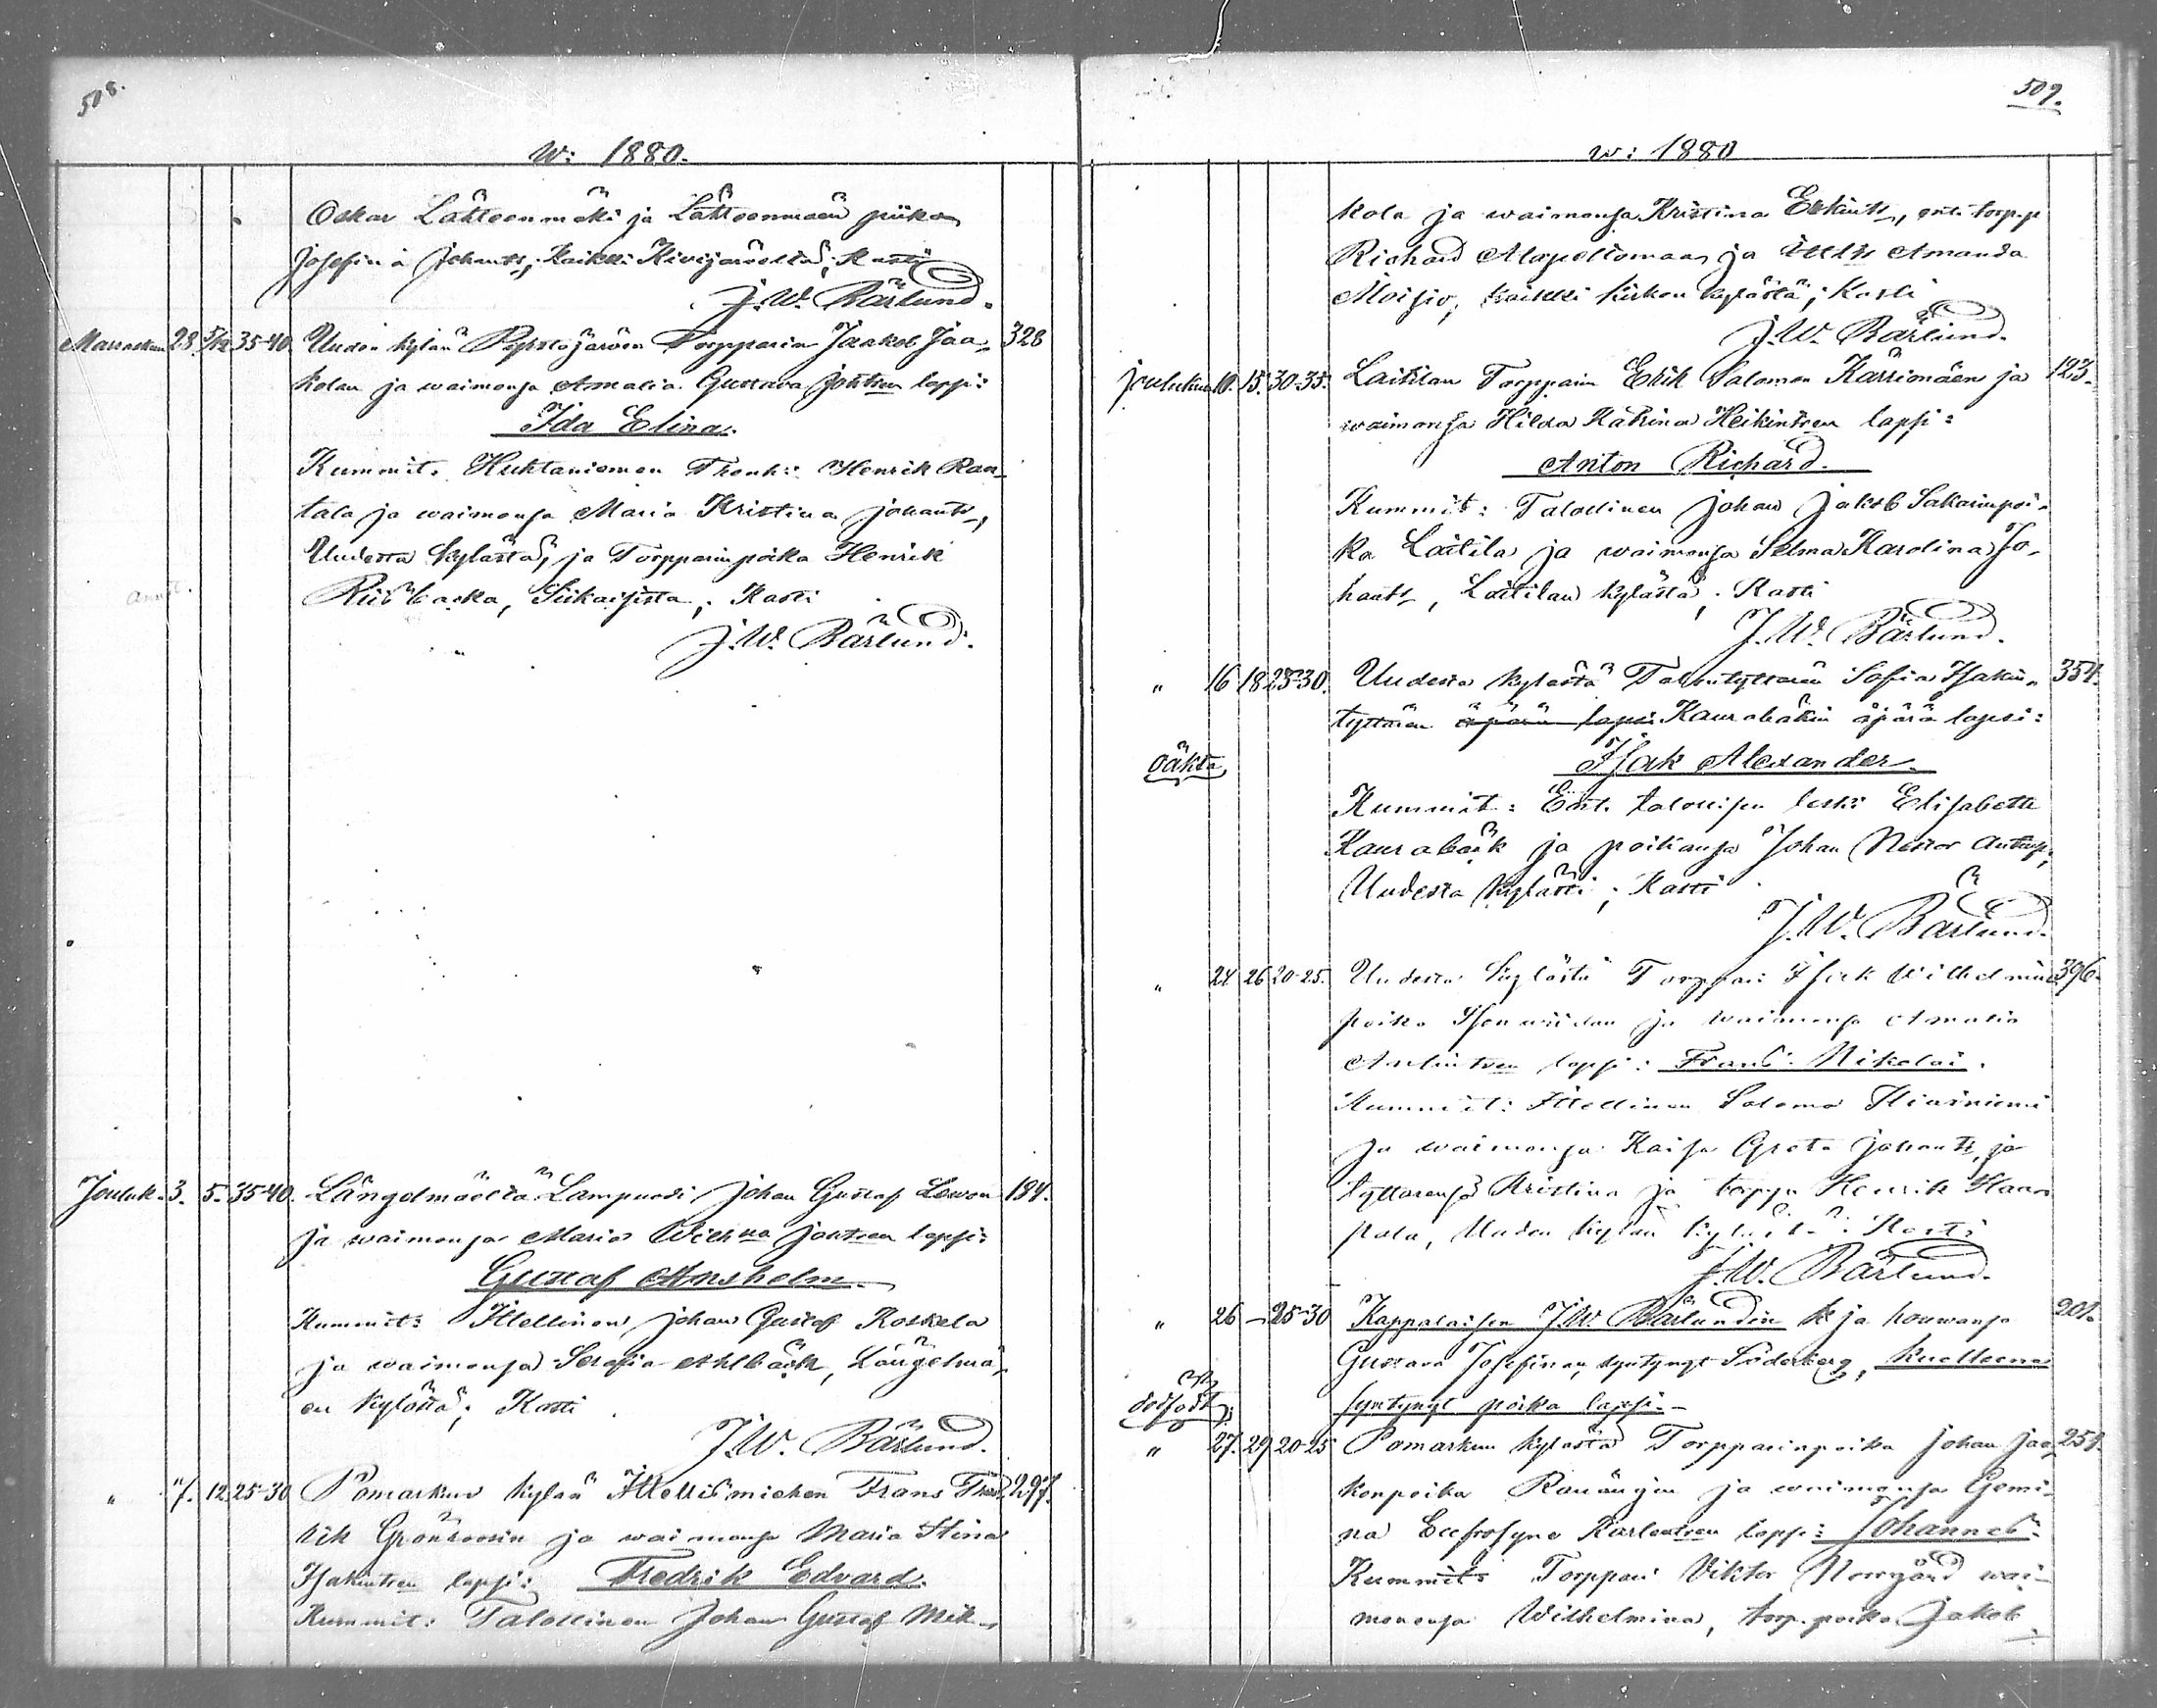 508.
w: 1880.
Oskar Lähteenmäki ja Lähteenmäen piika
Josefina Johants, kaikki Kivijärveltä; Kasti
J. W. Bärlund.
Marraskuu 28. 5/12 35-40. Uuden kylän Torpparin Jaakob Jaa- 328
kolan ja waimonsa Amalia Gustava Johtren lapsi:
Ida Elina.
Kummit. Huhtaniemen Henrik Ran-
tala ja waimonsa Maria Kristina Johants,
Uudesta kylästä, ja Torpparinpoika Henrik
Siikaisista; Kasti
J. W. Bärlund.
Jouluk. 3. 5. 35-40. Längelmäeltä Lampuodi Johan Gustaf Lewon 194.
ja waimonsa Maria Wilhna Johtren lapsi:
Gustaf Ansholm.
Kummit: Itellinen Johan Gustaf Koskela
ja waimonsa Serafia Ahlbäck, Längelmä-
en kylästä; Kasti
J. W. Bärlund.
" 7. 12. 25-30 Pomarkun kylän Itellismiehen Frans Fred- 297.
rik Grönroosin ja waimonsa Maria Stina
Isakintren lapsi: Fredrik Edvard.
Kummit: Talollinen Johan Gustaf Mik-
509.
w: 1880
kola ja waimonsa Kristina Erkints, torpp
Richard ja Amanda
Moisio, kaikki kirkon kylästä; Kasti
J. W. Bärlund.
Joulukuu 10. 15. 30-35. Laitilan Torpparin Erik Salomon Kärrimäen ja 123.
waimonsa Hilda Katrina Heikintren lapsi:
Anton Richard.
Kummit: Talollinen Johan Jakob Sakarinpoi-
ka Laitila ja waimonsa Selma Karolina Jo-
hants, Laitilan kylästä; Kasti
J. W. Bärlund.
" 16 18 25-30. Uudesta kylästä Talontyttären Sofia Isakin- 354.
tyttären äpärä lapsi Kaurabäkin äpärä lapsi:
oäkta
Isak Alexander.
Kummit: Ent. talollisen leski Elisabetta
Kauraback ja poikansa Johan Nestor Anttip,
Uudesta kylästä; Kasti
J. W. Bärlund.
" 24 26 20-25. Uudesta kylästä Torppari Isak Wilhelmin 396.
poika ja waimonsa Amalia
lapsi: Frans Nikolai.
Kummit: Itellinen Salomo
ja waimonsa Kaisa Greta Johants, ja
tyttärensä Kristina ja torppa Henrik Haan-
pala, Uuden kylän kylästä; Kasti
J. W. Bärlund.
" 26 — 25-30 Kappalaisen J. W. Bärlundin ja rouwansa 201.
Gustava Josefinan, syntynyt Söderberg, kuolleena
dödfödt
syntynyt poika lapsi.-
" 27. 29 20-25 Pomarkun kylästä Torpparinpoika Johan Jaa- 254.
konpoika ja waimonsa Gemi-
na Eufrosyne Karlentren lapsi: Johannes.
Kummit: Torppari Viktor Norrgård wai-
monensa Wilhelmina, torp. poika Jakob